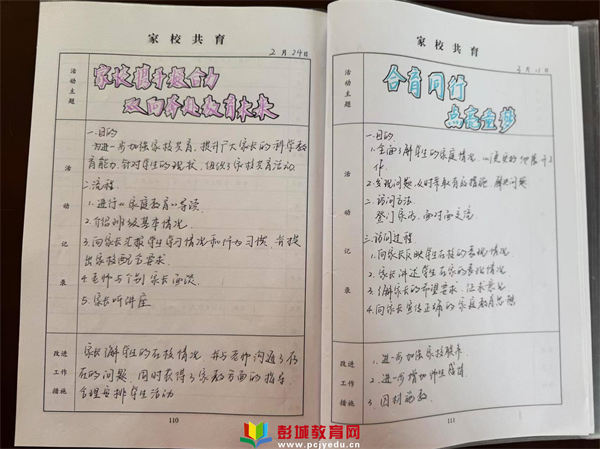 家校共育
2月24日
活动主题
家校携手凝合力
双向奔赴教育未来
活动记录
一.目的
为进一步加强家校共育,提升广大家长的科学教
育能力,针对学生的现状,组织了家校共育活动。
二.流程
1.进行《家庭教育》导读
2.介绍班级基本情况
3.向家长汇报学生学习情况和行为习惯,并提
出家校配合要求
4.老师与个别家长面谈
5.家长听讲座
改进工作措施
家长了解学生的在校情况,并与老师沟通了存
在的问题,同时获得了家教方面的指导,
合理安排学生活动
110
家校共育
月 日
活动主题
合育同行
点亮童梦
活动记录
一.目的
1.全面了解学生的家庭情况,以便更好地展开工
作
2.发现问题,及时采取有效措施,解决问题
二.访问方法
登门家访,面对面交流
三.访问过程
1.向家长反映学生在校的表现情况
2.家长讲述学生在家的表现情况
3.了解家长的希望要求,征求意见
4.向家长宣传正确的家庭教育思想
改进工作措施
1.进一步加强家校联系
2.进一步增加师生
3.因材施教
111
彭城教育网
www.pcjyedu.cn